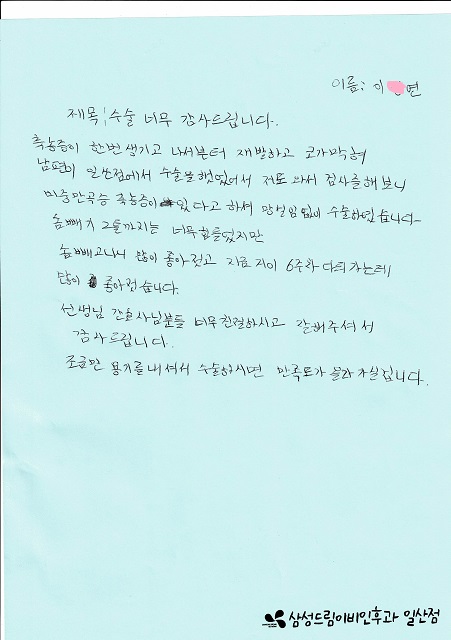 이름: 이 연
제목: 수술 너무 감사드립니다.
축농증이 한번 생기고 나서부터 재발하고 코가막혀
남편이 일산점에서 수술을 했었어서 저도 와서 검사를해보니
비중만곡증 축농증이 있다고 하셔 망설임없이 수술하였습니다~
솜빼기 2틀까지는 너무힘들었지만
솜빼고나니 많이 좋아졌고 치료차이 6주차 다되가는데
많이 좋아졌습니다.
선생님 간호사님분들 너무친절하시고 잘해주셔서
감사드립니다.
조금만 용기를내셔서 수술하시면 만족도가 올라가실겁니다.
삼성드림이비인후과 일산점